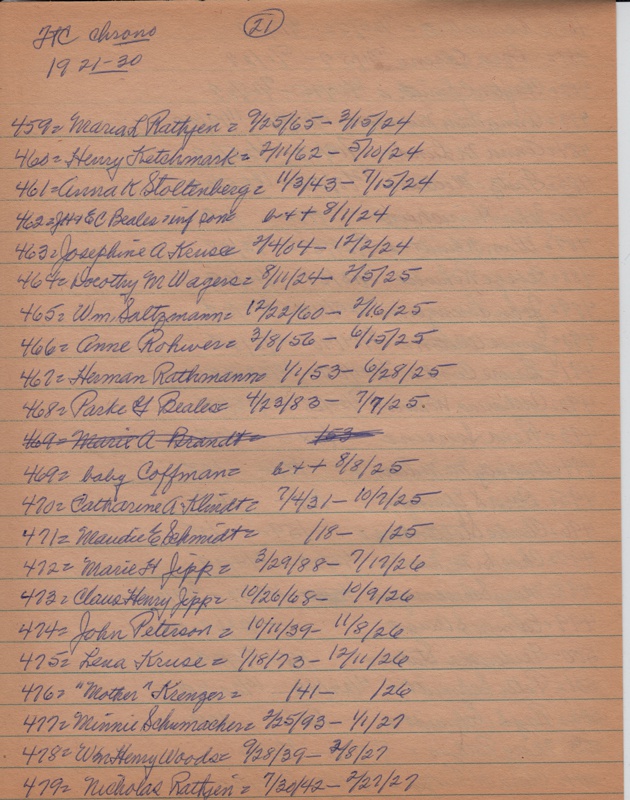 FtC chrono
21
1921-30
459= Maria L Rathjen = 9/25/65 - 3/15/24
460= Henry Ketchmark = 2/11/62 - 5/10/24
461= Anna K Stoltenberg = 11/3/43 - 7/15/24
462= JH + EC Beales = inf son b++ 8/1/24
463= Josephine A Keuse 2/4/04 - 12/2/24
464= Dorothy M Wagers = 8/11/24 - 2/5/25
465= Wm Saltzmann = 12/22/60 - 2/16/25
466= Anne Rohwer = 3/8/56 - 6/15/25
467= Herman Rathmann 1/1/53 - 6/28/25
468= Parke Beales 4/23/83 - 7/7/25.
469= Marie A Brandt = 153
469= baby Coffman = b++ 8/8/25
470= Catharine A Klindt = 7/4/31 - 10/7/25
471= Maudie E Schmidt = /18 - /25
472= Marie H Jipp = 3/29/88 - 7/17/26
473= Claus Henry Jipp = 10/26/68 - 10/9/26
474= John Peterson = 10/11/39 - 11/8/26
475= Lena Kruse = 1/18/73 - 12/11/26
476= "Mother" Krenger = /41 - /26
477= Minnie Schumacher = 2/25/93 - 1/1/27
478= Wm Henry Woods = 9/28/39 - 2/8/27
479= Nicholas Rathjen = 7/30/42 - 2/27/27